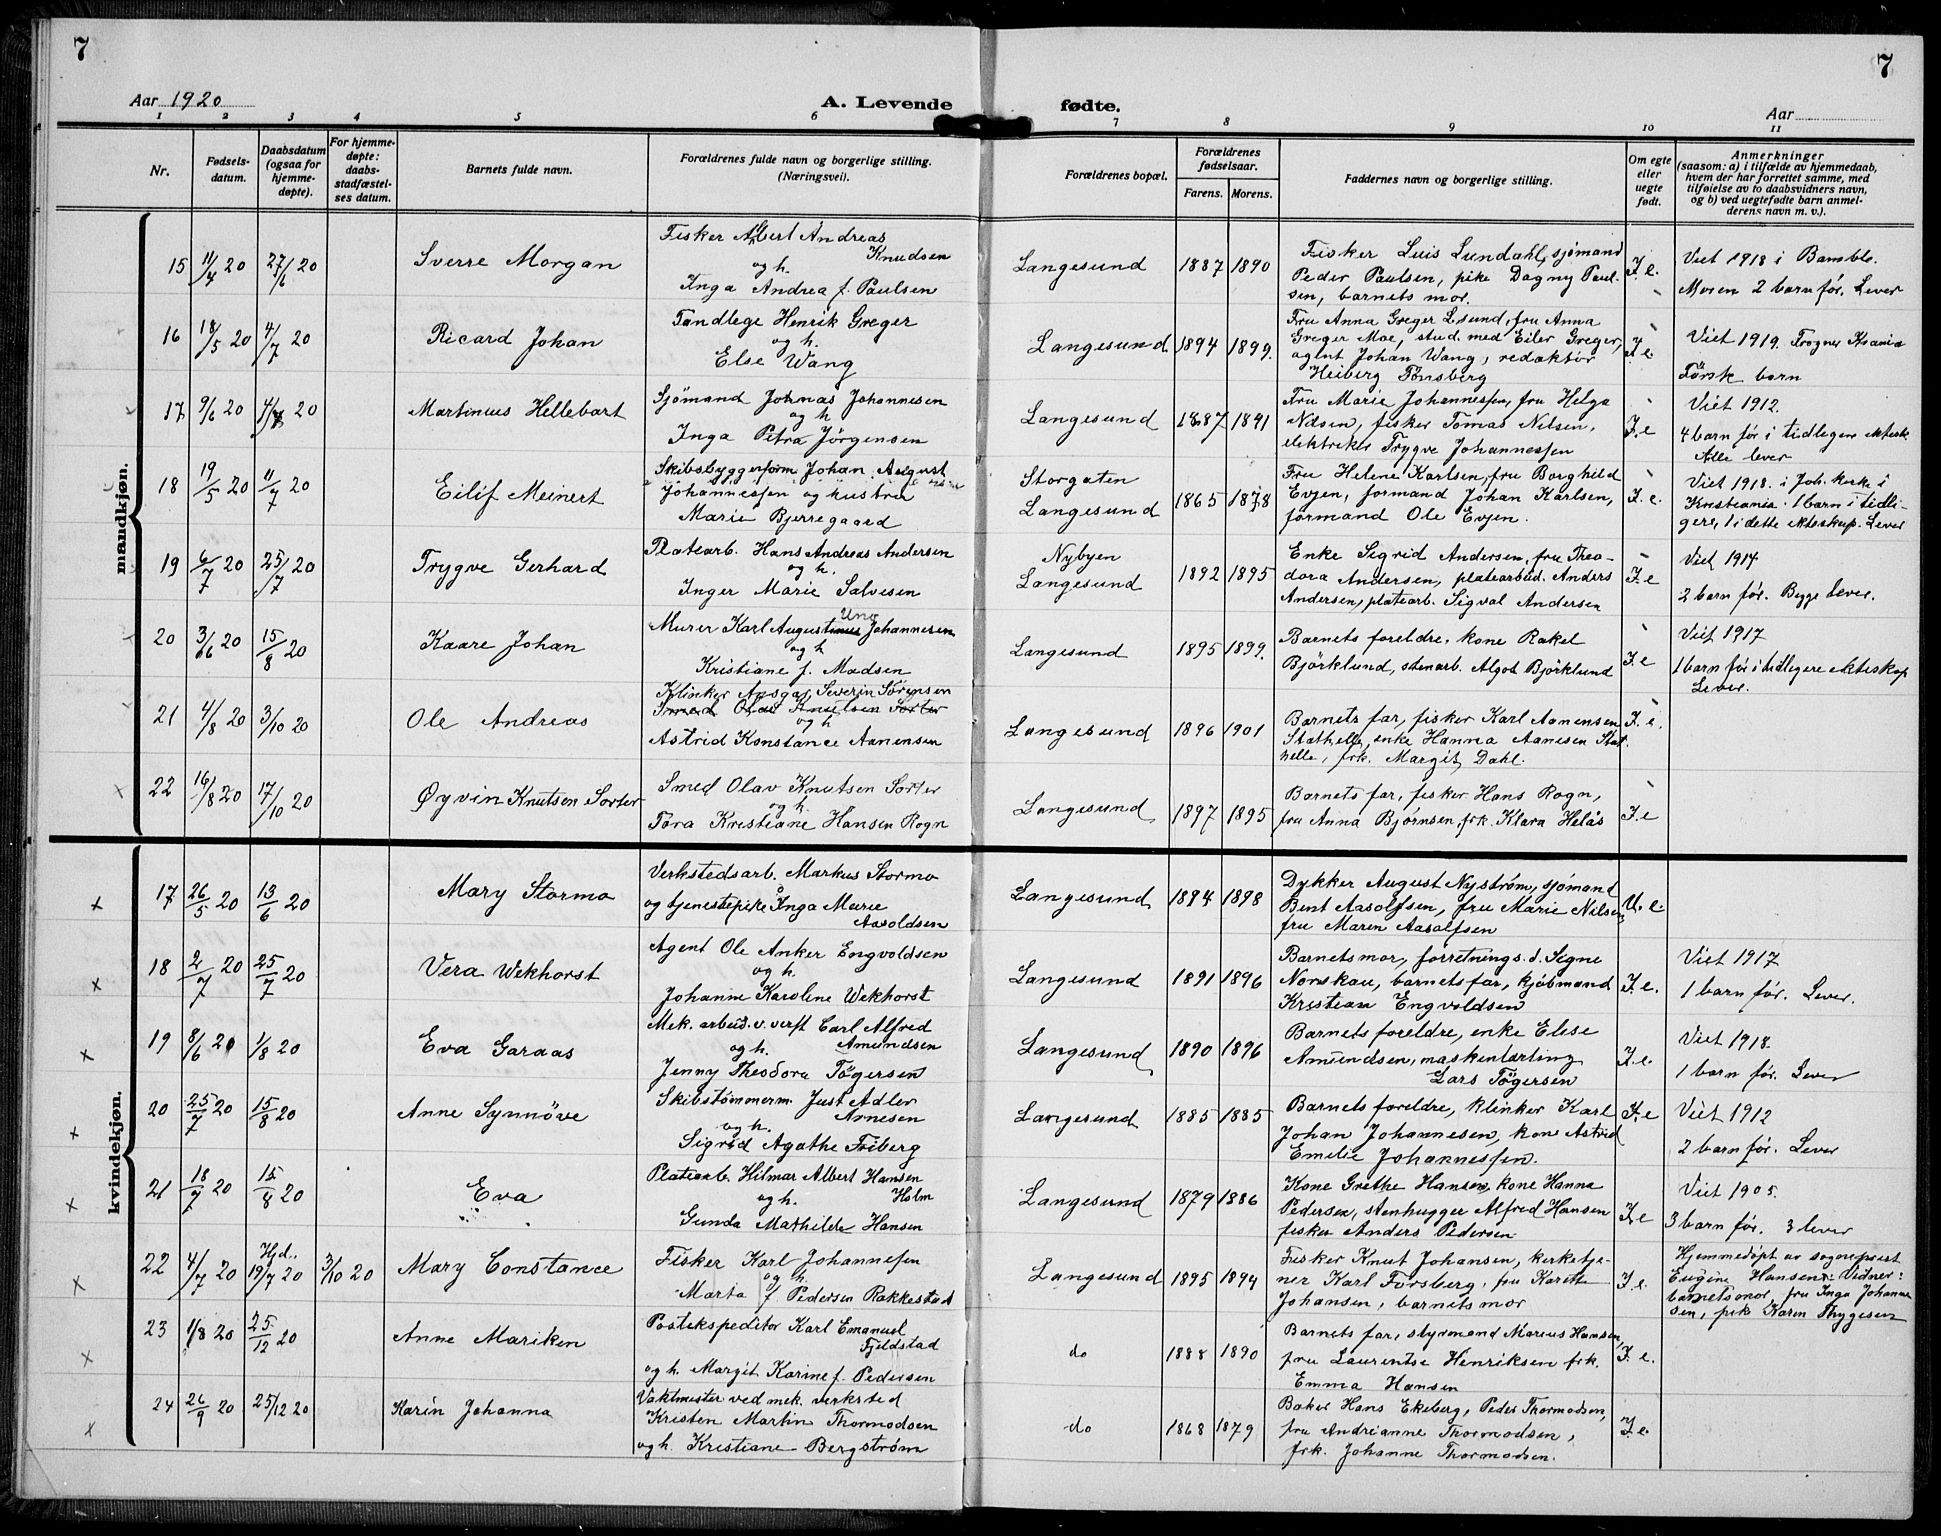 7
7
Aar 1920
A. Levende fødte.
Aar
1 2 3 4 5 6 7 8 9 10 11
Nr.
Fødsels-
datum.
Daabsdatum
(ogsaa for
hjemme-
døpte).
For hjemme-
døpte:
daabs-
stadfæstel-
ses datum.
Barnets fulde navn.
Forældrenes fulde navn og borgerlige stilling.
(Næringsvei).
Forældrenes bopæl.
Forældrenes
fødselsaar.
Farens. Morens.
Faddernes navn og borgerlige stilling.
Om egte
eller
uegte
født.
Anmerkninger
(saasom: a) i tilfælde av hjemmedaab,
hvem der har forrettet samme, med
tilføielse av to daabsvidners navn,
og b) ved uegtefødte barn anmel-
derens navn m. v.).
mandkjøn.
15 11/4 20 27/6 20 Sverre Morgan
Fisker Albert Andreas
Knudsen
og h.
Inga Andrea f. Paulsen
Langesund 1887 1890
Fisker Luis Lundahl, sjømand
Peder Paulsen, pike Dagny Paul-
sen, barnets mor.
F. e.
Viet 1918 i Bamble.
Moren 2 barn før. Lever
16 18/5 20 4/7 20 Ricard Johan
Tandlege Henrik Greger
og h.
Else Wang
Langesund 1894 1899.
Fru Anna Greger Lsund, fru Anna
Greger Moe, stud. med Eiler Greger,
agent Johan Wang, redaktør
Heiberg Tønsberg
F. e.
Viet 1919. Frogner Krania
Første barn
17 9/6 20 4/7 20 Martinius Hellebart
Sjømand Johnas Johannesen
og h
Inga Petra Jörgensen
Langesund 1887 1891
Fru Marie Johannessen, fru Helga
Nilsen, fisker Tomas Nilsen,
elektriker Trygve Johannessen
F. e
Viet 1912.
4 barn før i tidligere ektesk.
Alle lever
18 19/5 20 11/7 20 Eilif Meinert
Skibsbyggerform. Johan August
Johannessen og hustru
Marie Bjerregaard
Storgaten
Langesund 1865 1878
Fru Helene Karlsen, fru Borghild
Evjen, formand Johan Karlsen,
formand Ole Evjen.
F. e.
Viet 1918. i Joh. kirke i
Kristiania. 1 barn i tidli-
gere, 1 i dette ekteskap. Lever
19 6/7 20 25/7 20 Trygve Gerhard
Platearb. Hans Andreas Andersen
og h.
Inger Marie Salvesen
Nybyen
Langesund 1892 1895
Enke Sigrid Andersen, fru Theo-
dora Andersen, platearbeid. Anders
Andersen, platearb. Sigval Andersen
F. e
Viet 1914
2 barn før. Begge lever.
20 3/6 20 15/8 20 Kaare Johan
Murer Karl Augustinus Johannesen
og h
Kristiane f. Madsen
Langesund 1895 1899.
Barnets foreldre. kone Rakel
Björklund, stenarb. Algot Björklund
F. e
Viet 1917
1 barn før i tidligere ekteskap
Lever.
21 4/8 20 3/10 20 Ole Andreas
Klinker Ansgar Severin Sörensen
Smed Olav Knutsen Sorter
og h
Astrid Konstance Aanensen
Langesund 1896 1901
Barnets far, fisker Karl Aanensen
Stathelle, enke Hanna Aanesen Stat-
helle, frk. Margit Dahl.
F. e.
22 16/8 20 17/10 20 Øyvin Knutsen Sorter
Smed Olav Knutsen Sorter
og h.
Tora Kristiane Hansen Rogn
Langesund 1897 1895
Barnets far, fisker Hans Rogn,
fru Anna Bjørnsen, frk. Klara Helås
F. e
kvindekjøn.
17 26/5 20 13/6 20 Mary Stormo
Verkstedsarb. Markus Stormo
og tjenestepike Inga Marie
Aasoldsen
Langesund 1894 1898
Dykker August Nyström, sjømand
Bent Aasolfsen, fru Marie Nilsen,
fru Maren Aasolfsen
U. e
18 2/7 20 25/7 20 Vera Wekhorst
Agent Ole Anker Engvoldsen
og h.
Johanne Karoline Wekhorst
Langesund 1891 1896
Barnets mor, forretnings. d. Signe
Norskau, barnets far, kjøbmand
Kristian Engvoldsen
F. e.
Viet 1917
1 barn før. Lever.
19 8/6 20 1/8 20 Eva Garaas
Mek. arbeid. v. verft Carl Alfred
Amundsen
og h.
Jenny Theodora Tögersen
Langesund 1890 1896
Barnets foreldre, enke Elise
Amundsen, maskinlærling
Lars Tögersen
F. e
Viet 1918.
1 barn før. Lever
20 25/7 20 15/8 20 Anne Synnöve
Skibstømmerm. Just Adler
Arnesen
og h.
Sigrid Agathe Friberg
Langesund 1885 1885
Barnets foreldre, klinker Karl
Johan Johannesen, kone Astrid
Emelie Johannessen.
F. e
Viet 1912
2 barn før. Lever
21 18/7 20 15/8 20 Eva
Platearb. Hilmar Albert Hansen
Holm
og h.
Gunda Mathilde Hansen
Langesund 1879 1886
Kone Grethe Hansen, kone Hanna
Pedersen, stenhugger Alfred Hansen
fisker Anders Pedersen
F. e
Viet 1905.
3 barn før. 3 lever
22 4/7 20 Hjd. 19/7 20 3/10 20 Mary Constance
Fisker Karl Johannesen
og h.
Marta f. Pedersen Rakkestad
Langesund 1895 1894
Fisker Knut Johansen, kirketje-
ner Karl Forsberg, fru Karethe
Johansen, barnets mor
F. e.
Hjemmedöpt av sogneprest
Eugine Hansen. Vidner:
barnets mor, fru Inga Johanne-
sen, frk Karen Thygesen
23 1/8 20 25/12 20 Anne Mariken
Postekspeditør Karl Emanuel
Fjeldstad
og h. Margit Karine f. Pedersen
do 1888 1890
Barnets far, styrmand Marius Hansen,
fru Laurentse Henriksen frk.
Emma Hansen
F. e.
24 26/9 20 25/12 20 Karin Johanna
Vaktmester ved mek. verksted
Kristen Martin Thormodsen
og h. Kristiane Bergstrøm
do 1868 1879
Baker Hans Ekeberg, Peder Thormodsen,
fru Andrianne Thormodsen,
frk. Johanne Thormodsen.
F. e.